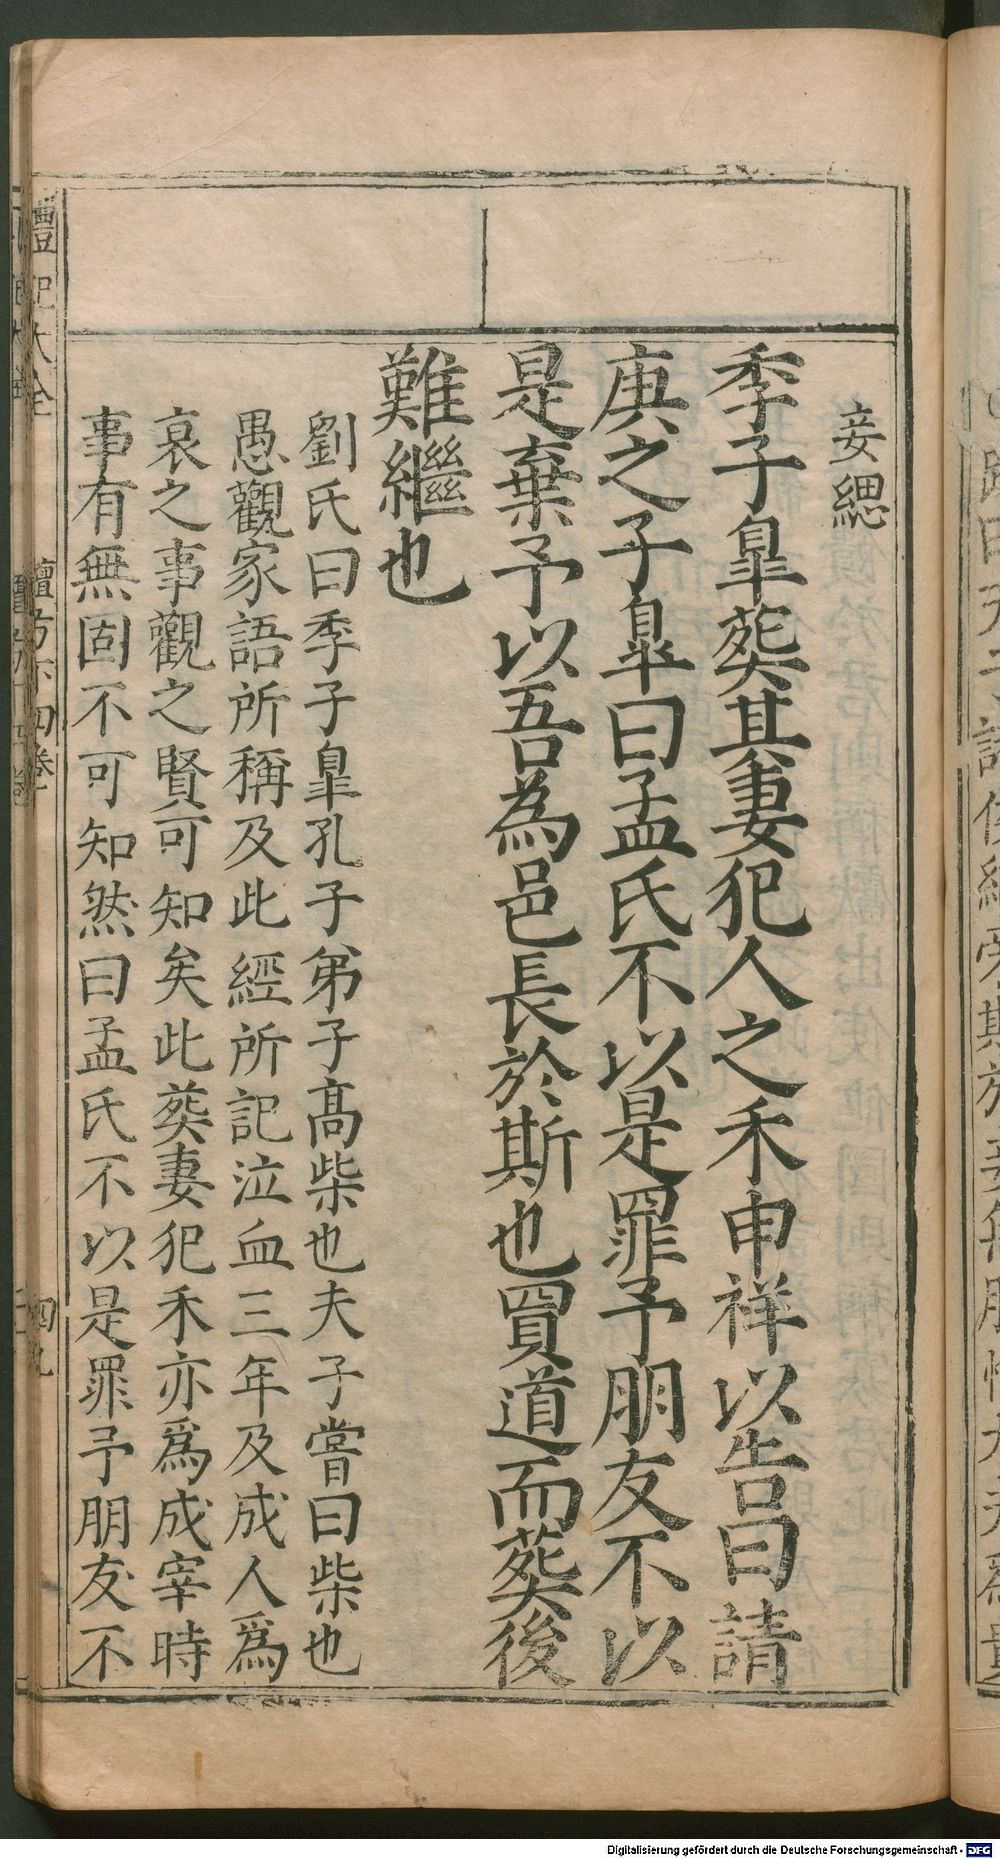 妾緦
季子臯葬其妻犯人之禾申祥以告曰請
庚之子臯曰孟氏不以是罪予朋友不以
是棄予以吾為邑長於斯也買道而葬後
難繼也
劉氏曰季子臯孔子弟子高柴也夫子嘗曰柴也
愚觀家語所稱及此經所記泣血三年及成人爲
哀之事觀之賢可知矣此葬妻犯禾亦爲成宰時
事有無固不可知然曰孟氏不以是罪予朋友不
禮記大全
檀弓下四卷
四九
Digitalisierung gefördert durch die Deutsche Forschungsgemeinschaft - DFG